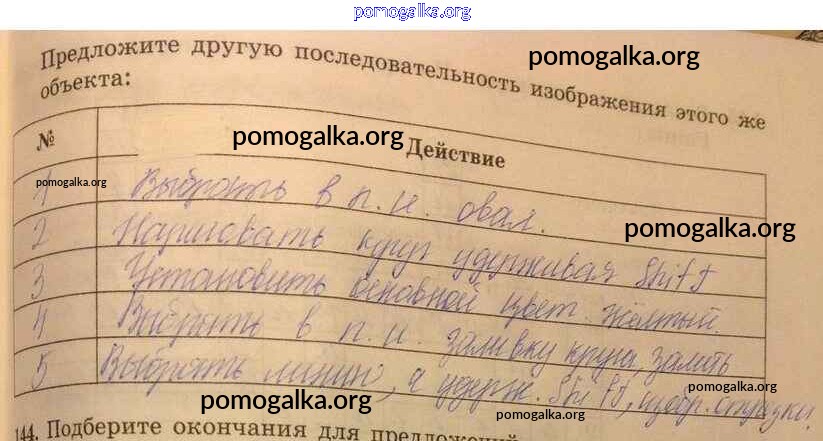 pomogalka.org
Предложите другую последовательность изображения этого же
объекта:
pomogalka.org
№ Действие
pomogalka.org
1 Выбрать в п. и. овал.
pomogalka.org
2 Нарисовать круг удерживая Shift
pomogalka.org
3 Установить основной цвет жёлтый.
4 Выбрать в п. и. заливку круга залить
5 Выбрать линию, а удерж. Shift, изобр.
pomogalka.org
pomogalka.org
pomogalka.org
144. Подберите окончания для предложений